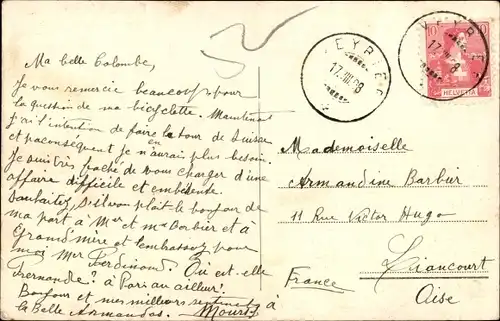 Ma belle Colombe,
Je vous remercie beaucoup pour
la question de ma bicyclette. Maintenant
j'ai l'intention de faire le tour de Suisse
et par conséquent je n'en aurai plus besoin.
Je suis très faché de vous charger d'une
affaire difficile et
Souhaitez, s'il vous plait le bonjour de
ma part à Mr et Mme Barbier et à
Grand'mère et embrassez pour
moi Mr Ferdinand. Où est-elle
Fernande? à Paris ou ailleurs?
Bonjour et mes meilleurs sentiments à
la Belle Armandas.
VEYRIER
17.III.08
VEYRIER
17.III.08
10
HELVETIA
Mademoiselle
Armandine Barbier
11 Rue Victor Hugo
Liancourt
France Oise